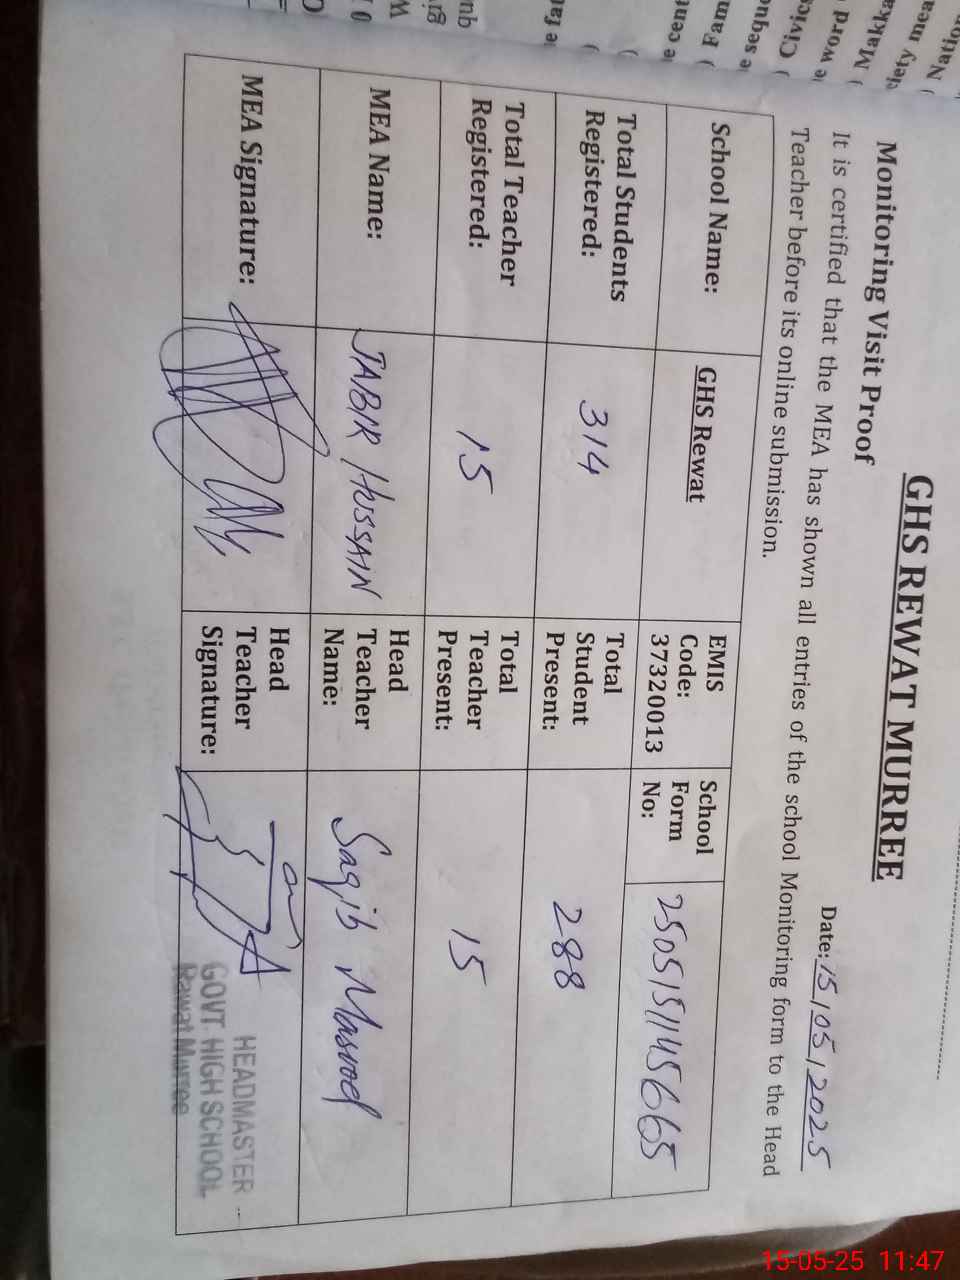 GHS REWAT MURREE
Date: 15/05/2025
Monitoring Visit Proof
It is certified that the MEA has shown all entries of the school Monitoring form to the Head
Teacher before its online submission.
School Name:
GHS Rewat
EMIS
Code:
37320013
School
Form
No:
Total Students
Registered:
314
Total
Student
Present:
288
Total Teacher
Registered:
15
Total
Teacher
Present:
15
MEA Name:
JABIR HUSSAIN
Head
Teacher
Name:
Saqib Masood
MEA Signature:
Head
Teacher
Signature:
HEADMASTER
GOVT. HIGH SCHOOL
Rawat Murree
15-05-25 11:47